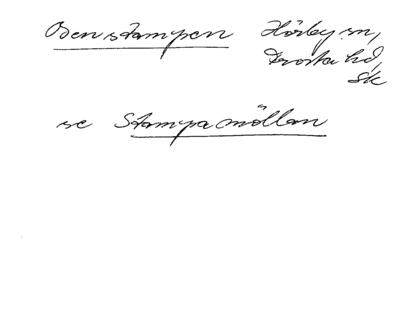 Osenstampen Hörby sn,
Frosta hd,
Sk
se Stampamöllan